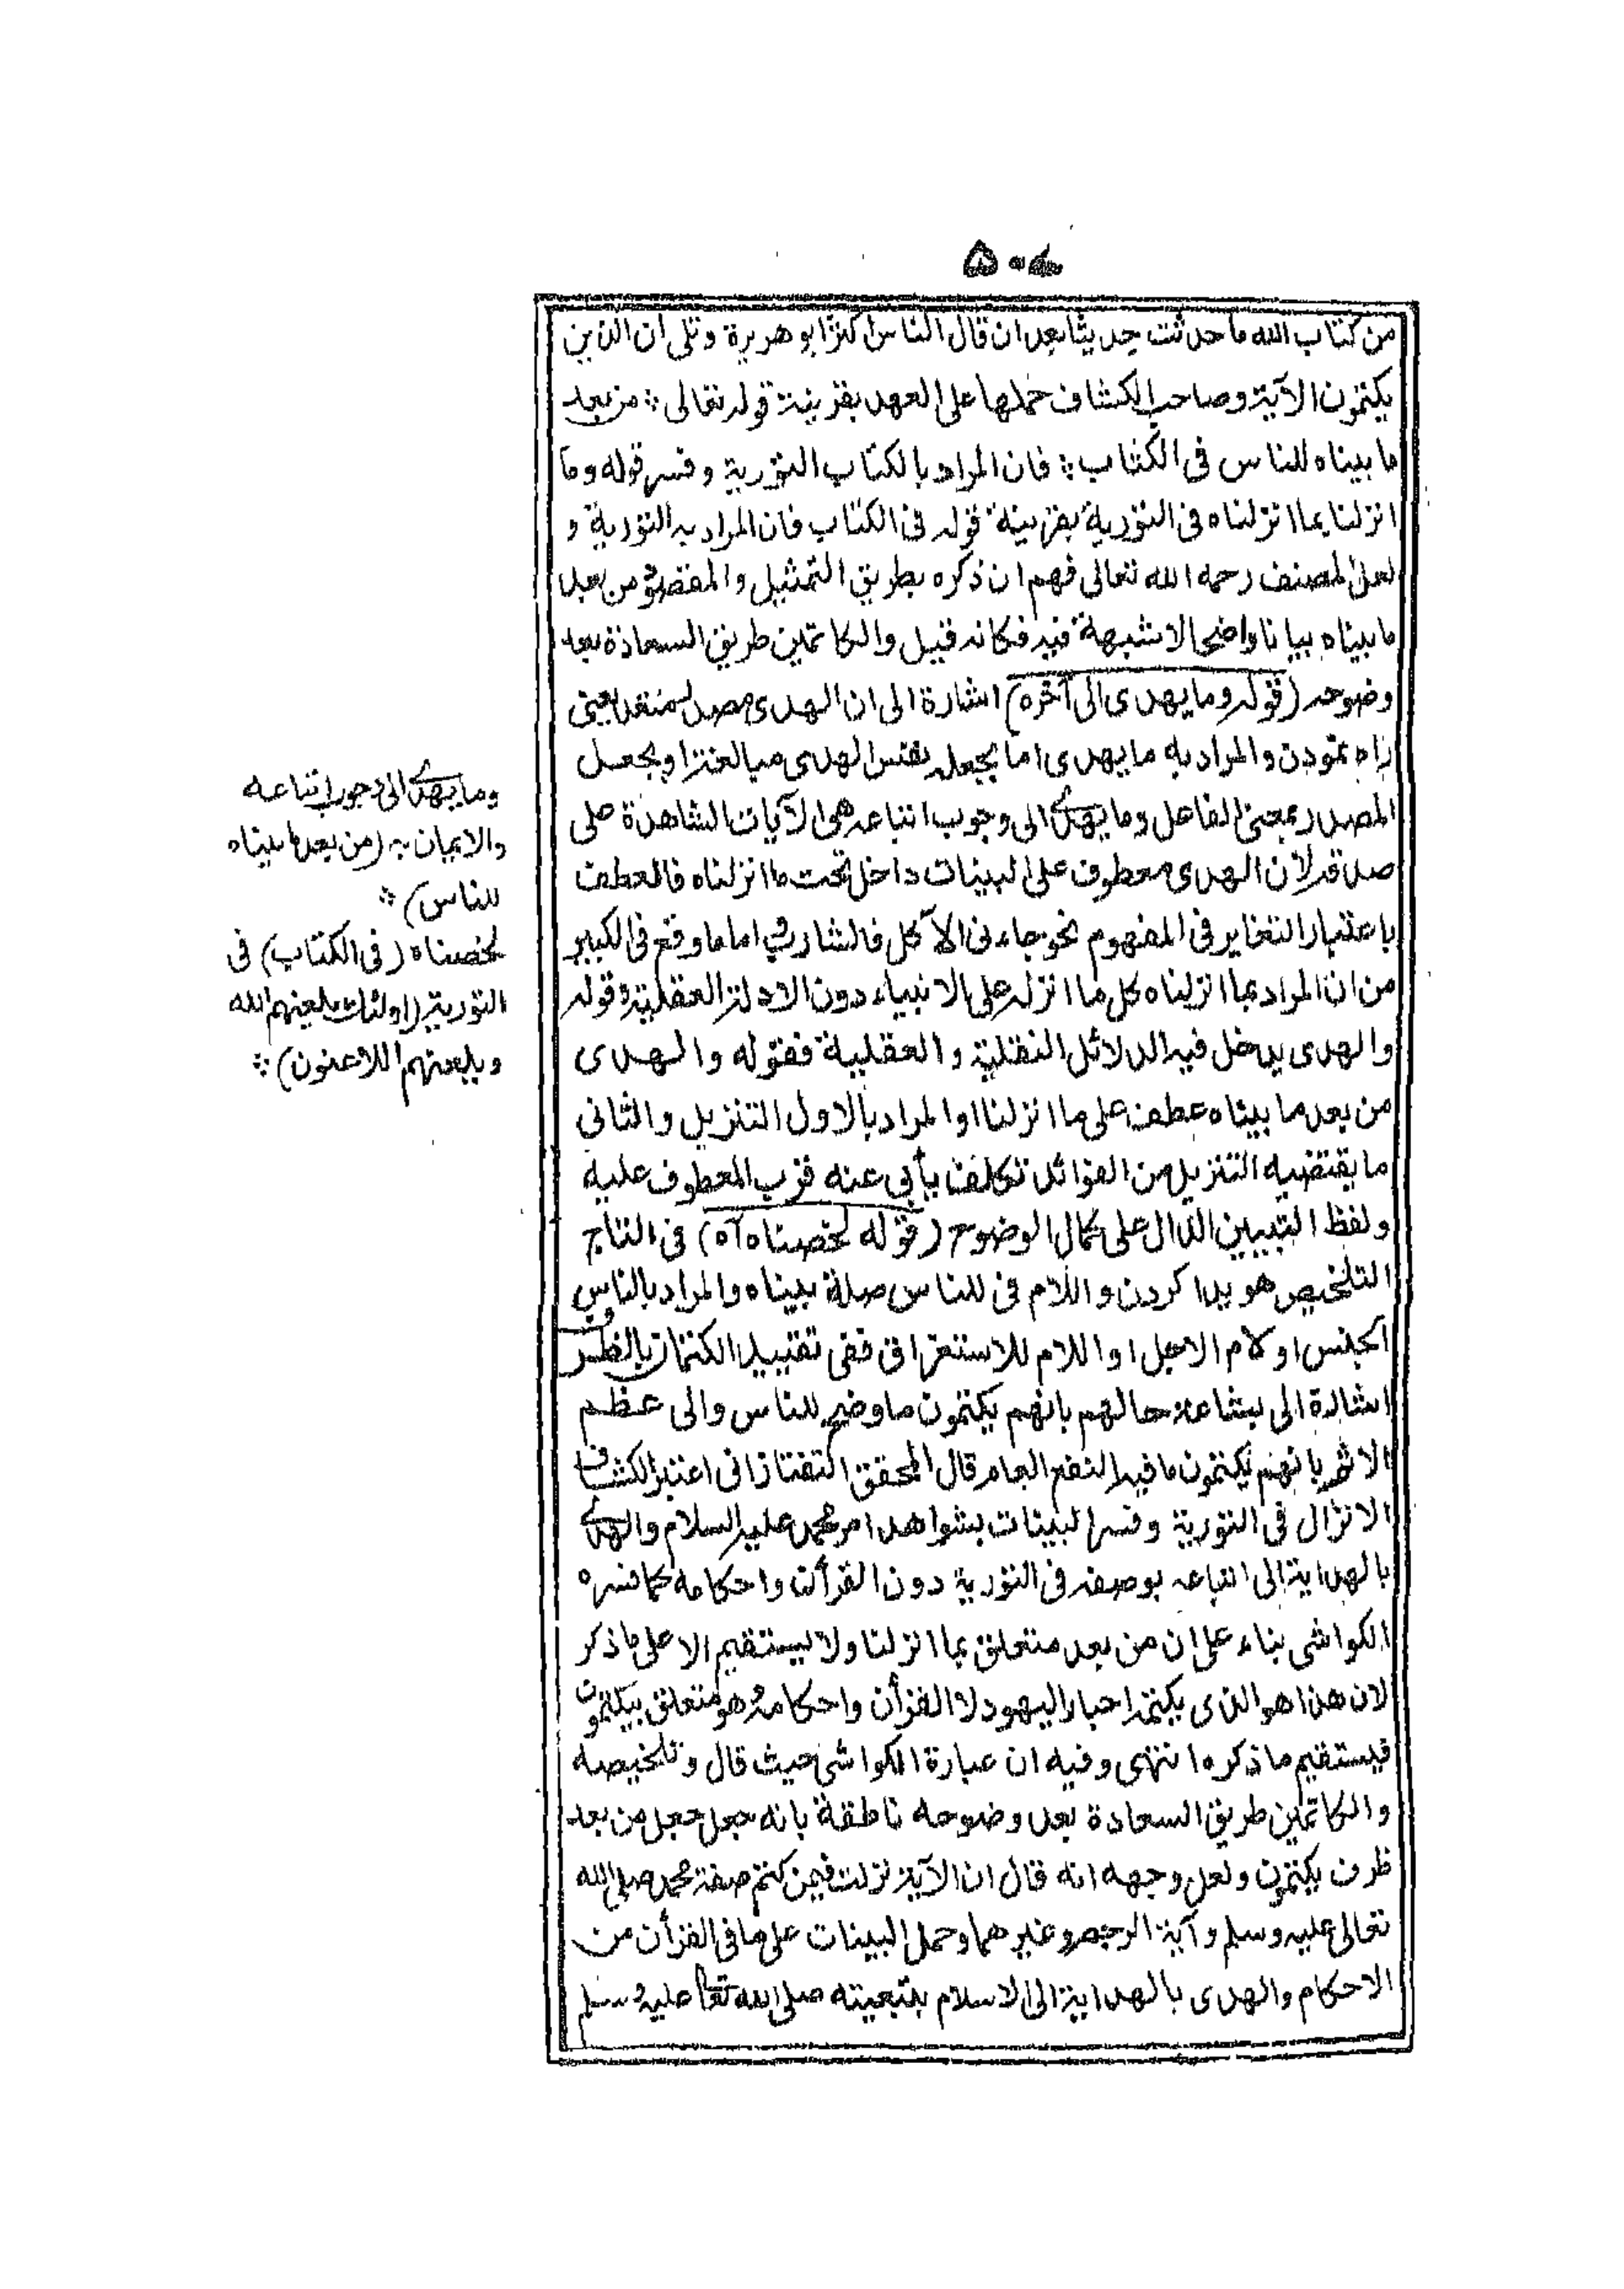 ٥٠٤
من كتاب الله ما حدثت حديثا بعد ان قال الناس اكثر ابو هريرة وتلى ان الذين
يكتمون الآية وصاحب الكشاف حملها على العهد بقرينة قوله تعالى ؞ من بعد
ما بيناه للناس فى الكتاب ؞ فان المراد بالكتاب التورية وفسر قوله وما
انزلنا بما انزلناه فى التورية بقرينة قوله فى الكتاب فان المراد به التورية و
لعل المصنف رحمه الله تعالى فهم ان ذكره بطريق التمثيل والمقصود من بعد
ما بيناه بيانا واضحا لا شبهة فيه فكانه قيل والكاتمين طريق السعادة بعد
وضوحه (قوله وما يهدى الى آخره) اشارة الى ان الهدى مصدر متعد بمعنى
راه نمودن والمراد به ما يهدى اما بجعله نفس الهدى مبالغة او بجعل
المصدر بمعنى الفاعل وما يهدى الى وجوب اتباعه هى الآيات الشاهدة على
صدقه لان الهدى معطوف على البينات داخل تحت ما انزلناه فالعطف
باعتبار التغاير فى المفهوم نحو جاءنى الآكل فالشارب اما ما وقع فى الكبير
من ان المراد بما انزلناه كل ما انزله على الانبياء دون الادلة العقلية وقوله
والهدى يدخل فيه الدلائل النقلية والعقلية فقوله والهدى
من بعد ما بيناه عطف على ما انزلنا او المراد بالاول التنزيل والثانى
ما يقتضيه التنزيل من الفوائد تكلف يأبى عنه قرب المعطوف عليه
ولفظ التبيين الدال على كمال الوضوح (قوله لخصناه آه) فى التاج
التلخيص هويدا كردن واللام فى للناس صلة بيناه والمراد بالناس
الجنس او لام الاجل او اللام للاستغراق ففى تقييد الكتمان بالظرف
اشارة الى بشاعة حالهم بانهم يكتمون ما وضح للناس والى عظم
الاثم بانهم يكتمون ما فيه النفع العام قال المحقق التفتازانى اعتبر الكشاف
الانزال فى التورية وفسر البينات بشواهد امر محمد عليه السلام والهدى
بالهداية الى اتباعه بوصفه فى التورية دون القرأن واحكامه كما فسره
الكواشى بناء على ان من بعد متعلق بما انزلنا ولا يستقيم الا على ما ذكر
لان هذا هو الذى يكتمه احبار اليهود لا القرأن واحكامه وهو متعلق بيكتمون
فيستقيم ما ذكره انتهى وفيه ان عبارة الكواشى حيث قال وتلخيصه
والكاتمين طريق السعادة بعد وضوحه ناطقة بانه جعل من بعد
ظرف يكتمون ولعل وجهه انه قال ان الآية نزلت فيمن كتم صفة محمد صلى الله
تعالى عليه وسلم وآية الرجم وغيرهما وحمل البينات على ما فى القرأن من
الاحكام والهدى بالهداية الى الاسلام بتبعيته صلى الله تعالى عليه وسلم
وما يهدى الى وجوب اتباعه
والايمان به (من بعد ما بيناه
للناس) ؞
لخصناه (فى الكتاب) فى
التورية (اولئك يلعنهم الله
ويلعنهم اللاعنون) ؞